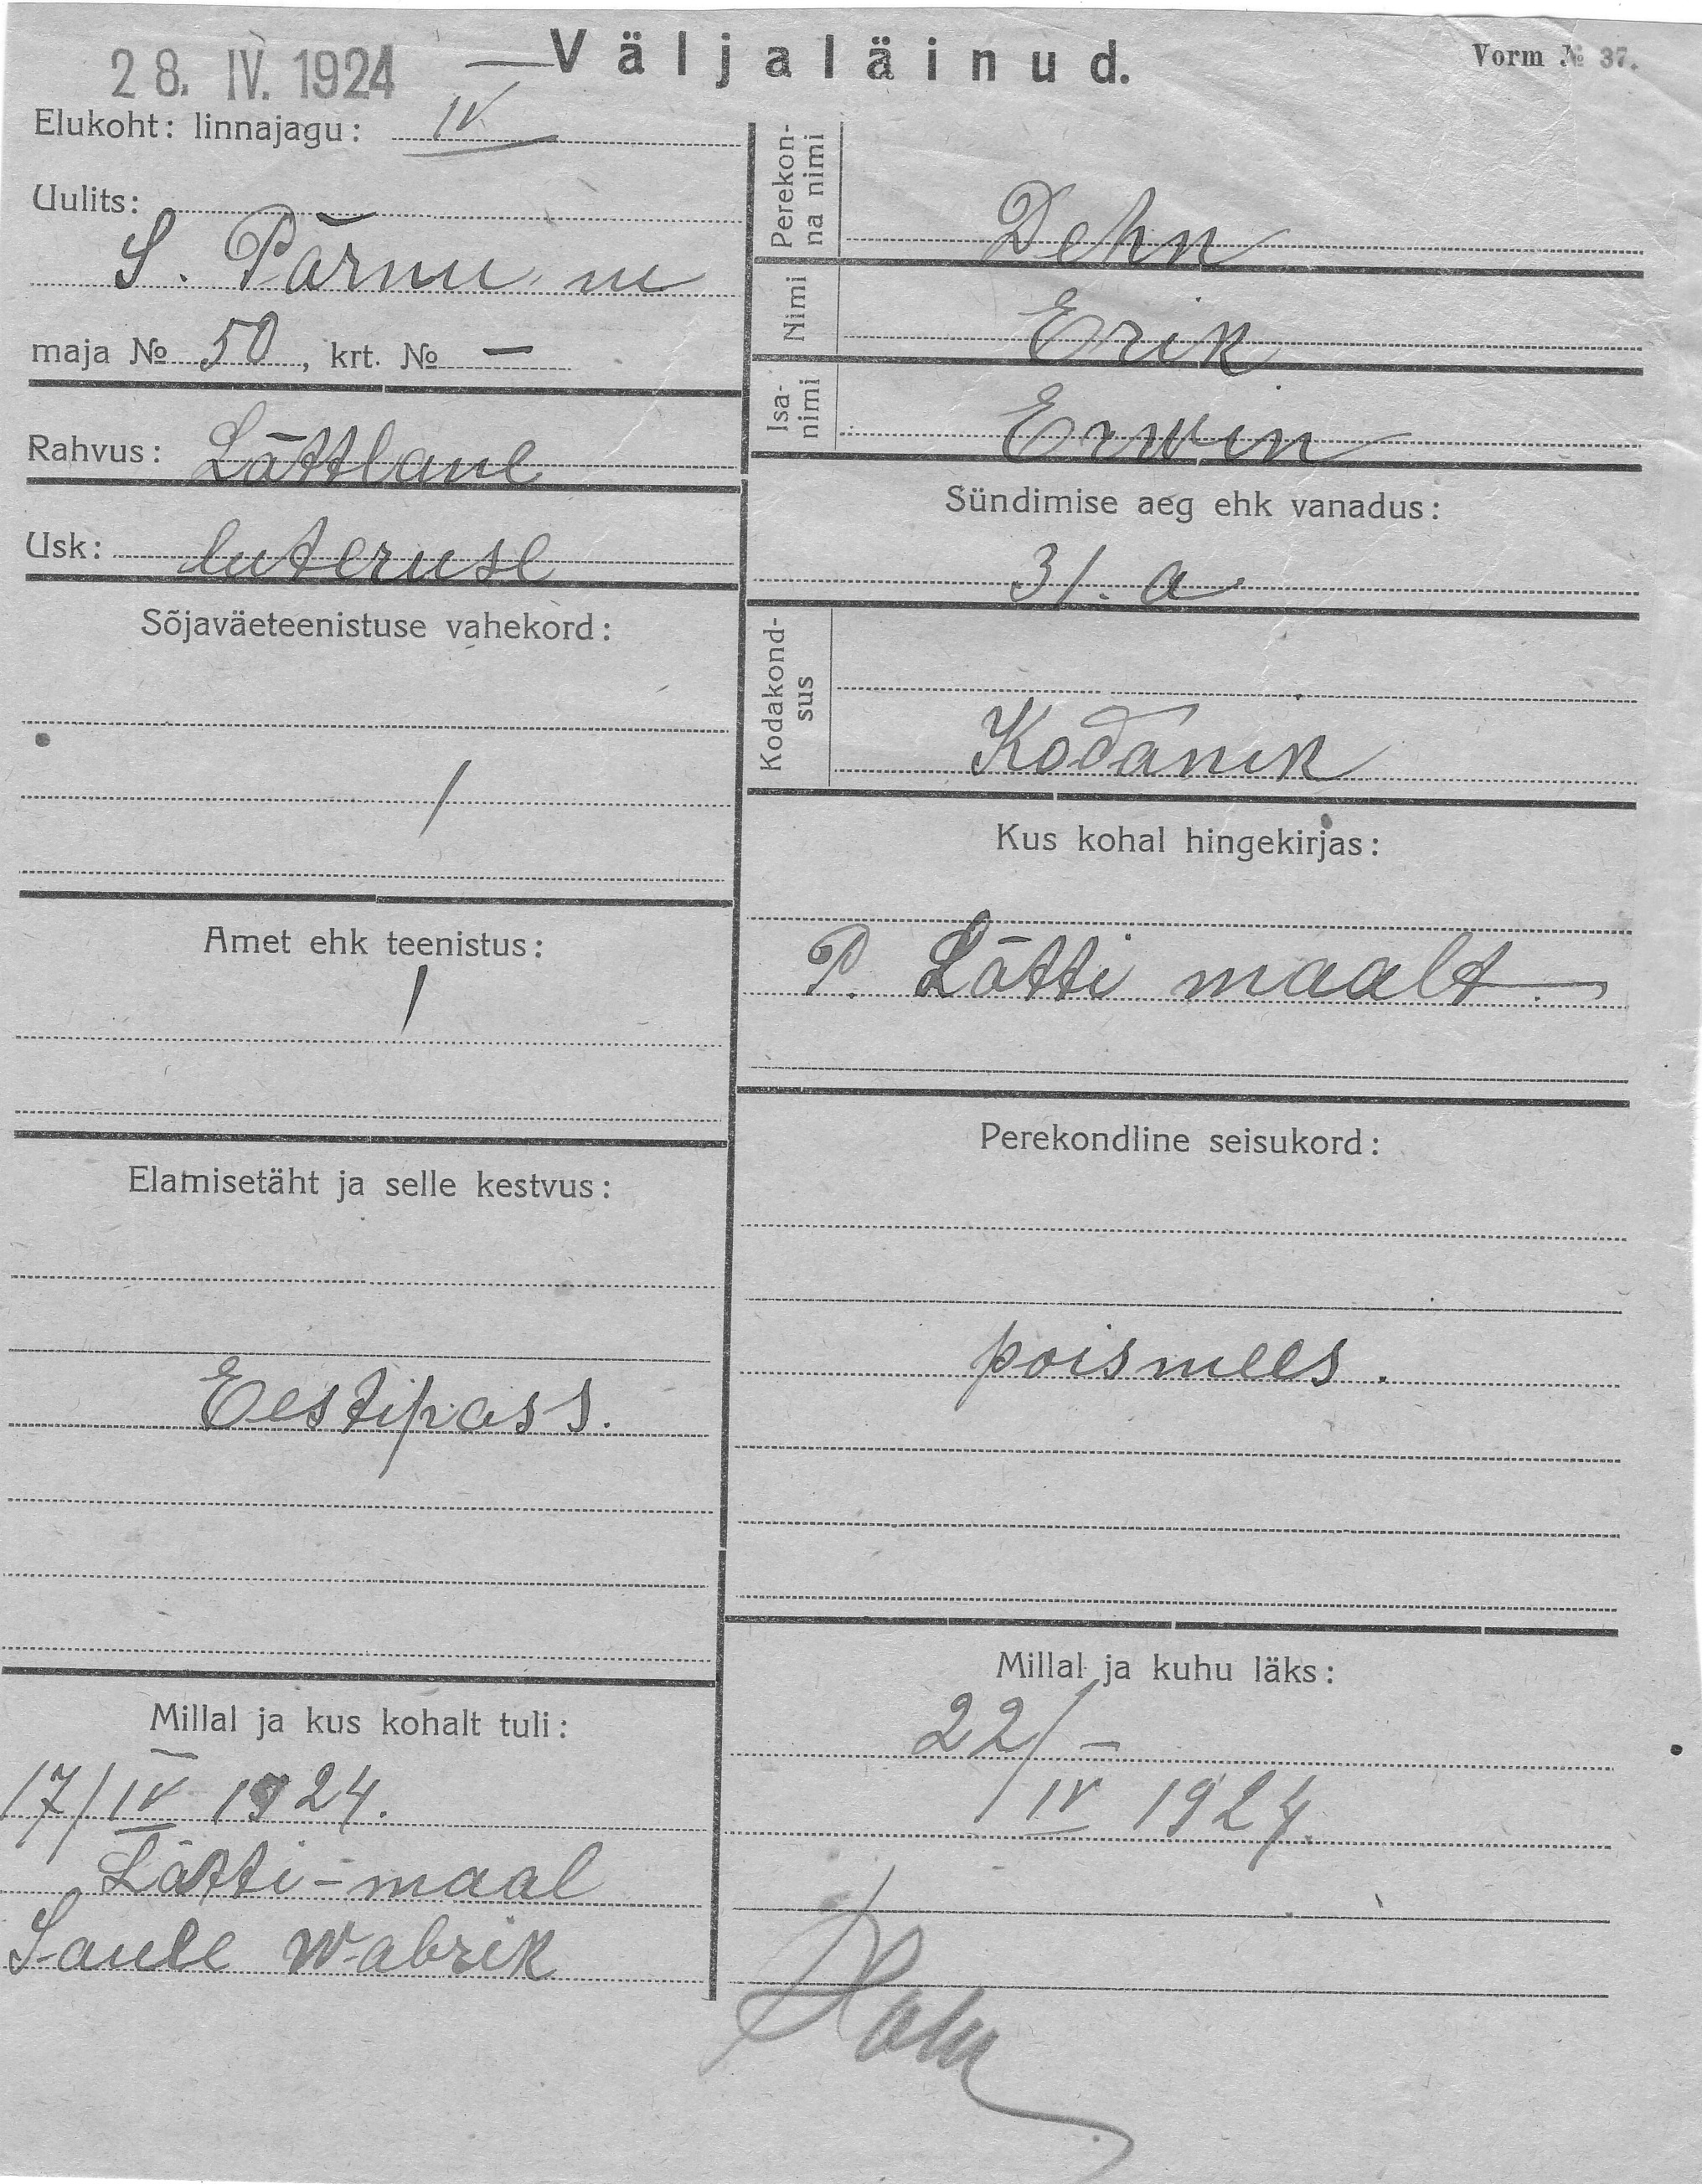 28. IV. 1924
Väljaläinud.
Vorm № 37.
Elukoht: linnajagu: IV
Uulits:
S. Pärnu m
maja № 50, krt. № —
Rahvus: Lättlane
Usk: luteruse
Sõjaväeteenistuse vahekord:
/
Amet ehk teenistus:
/
Elamisetäht ja selle kestvus:
Eestipass.
Millal ja kus kohalt tuli:
17/IV 1924.
Lätti-maal
Saule wabrik
Perekon-
na nimi
Dehn
Nimi
Erik
Isa-
nimi
Erwin
Sündimise aeg ehk vanadus:
31. a
Kodakond-
sus
Kodanik
Kus kohal hingekirjas:
P. Lätti maalt.
Perekondline seisukord:
poismees.
Millal ja kuhu läks:
22/
IV 1924.